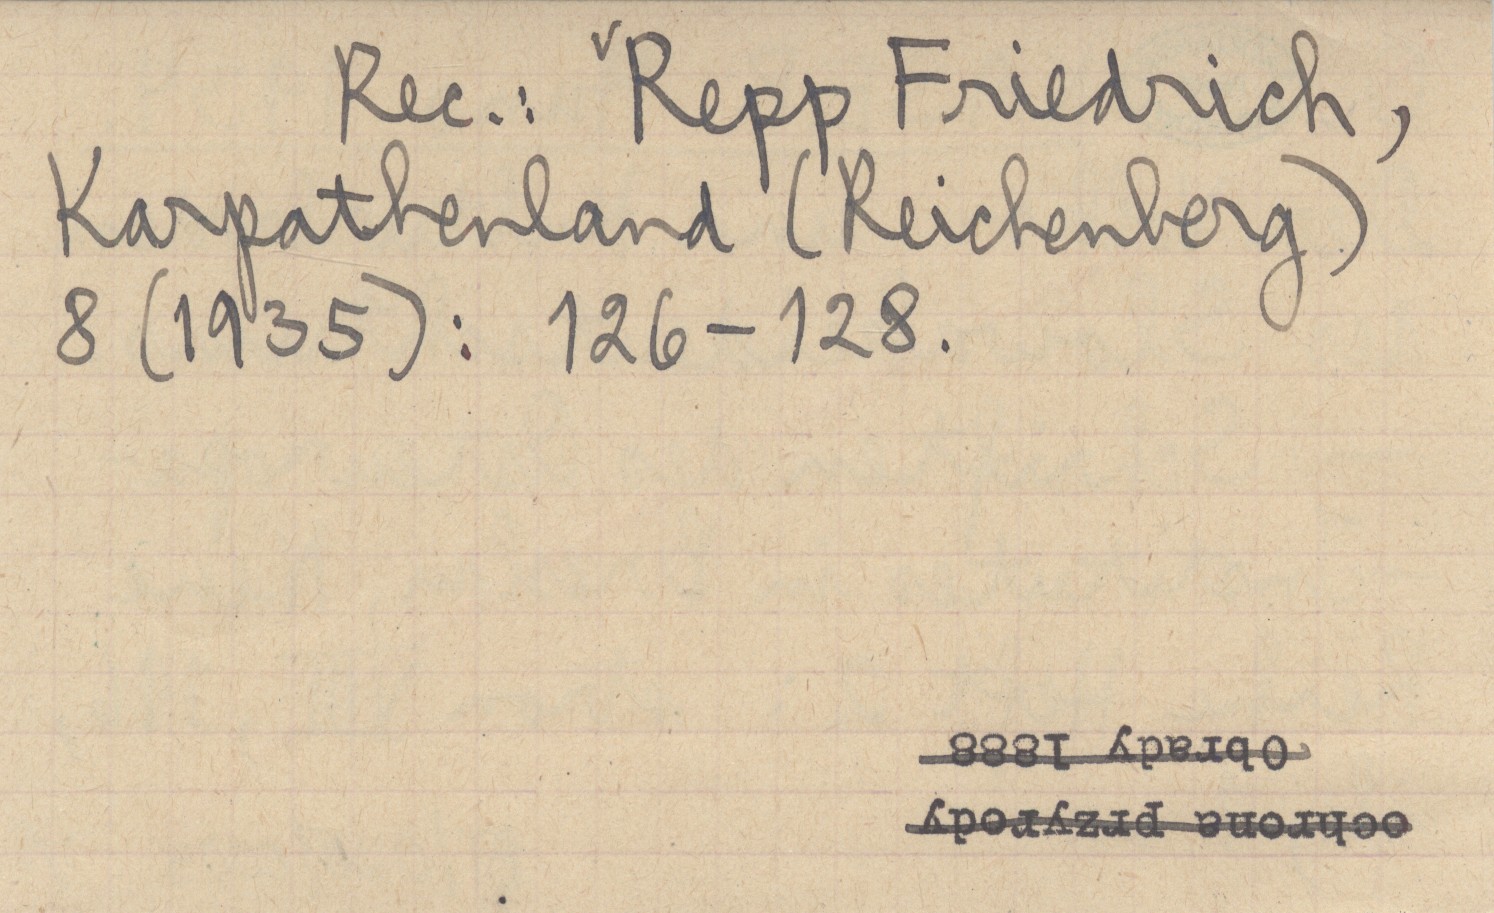 Rec.: Repp Friedrich,
Karpathenland (Reichenberg)
8 (1935): 126-128.
ochrona przyrody
Obrady 1888